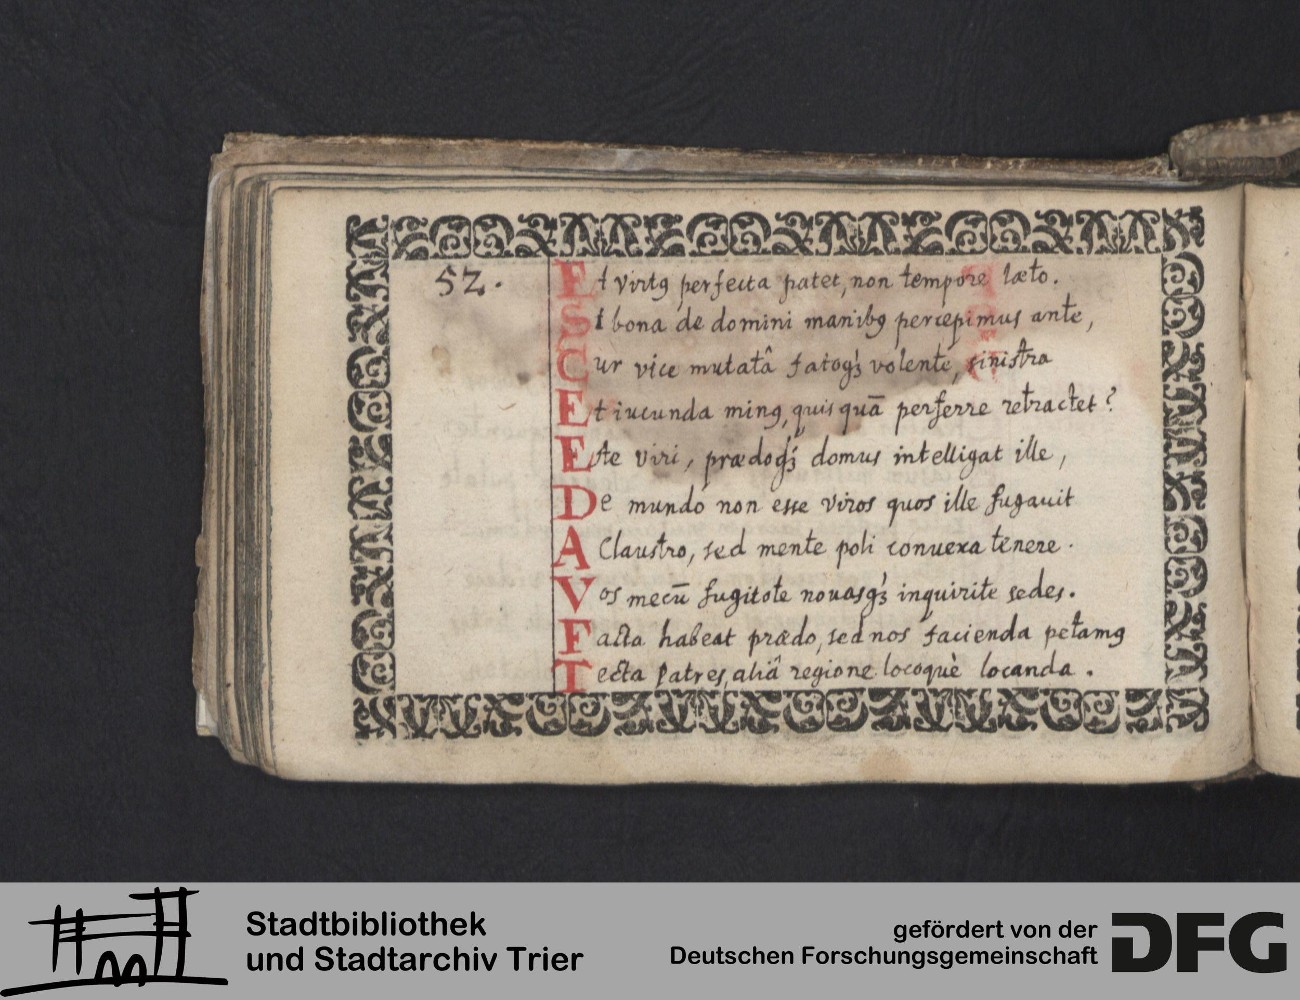 52.
Et virtꝰ perfecta patet, non tempore læto.
Si bona de domini manibꝰ percepimus ante,
Cur vice mutatâ fatoqꝫ volente, sinistra
Et iucunda minꝰ, quis quā perferre retractet?
Este viri, prædoqꝫ domus intelligat ille,
De mundo non esse viros quos ille fugavit
A Claustro, sed mente poli convexa tenere.
Vos mecū fugitote novasqꝫ inquirite sedes.
Facta habeat prædo, sed nos facienda petamꝰ
Tecta Patres, aliâ regione locoquè locanda.
Stadtbibliothek
und Stadtarchiv Trier
gefördert von der
Deutschen Forschungsgemeinschaft
DFG